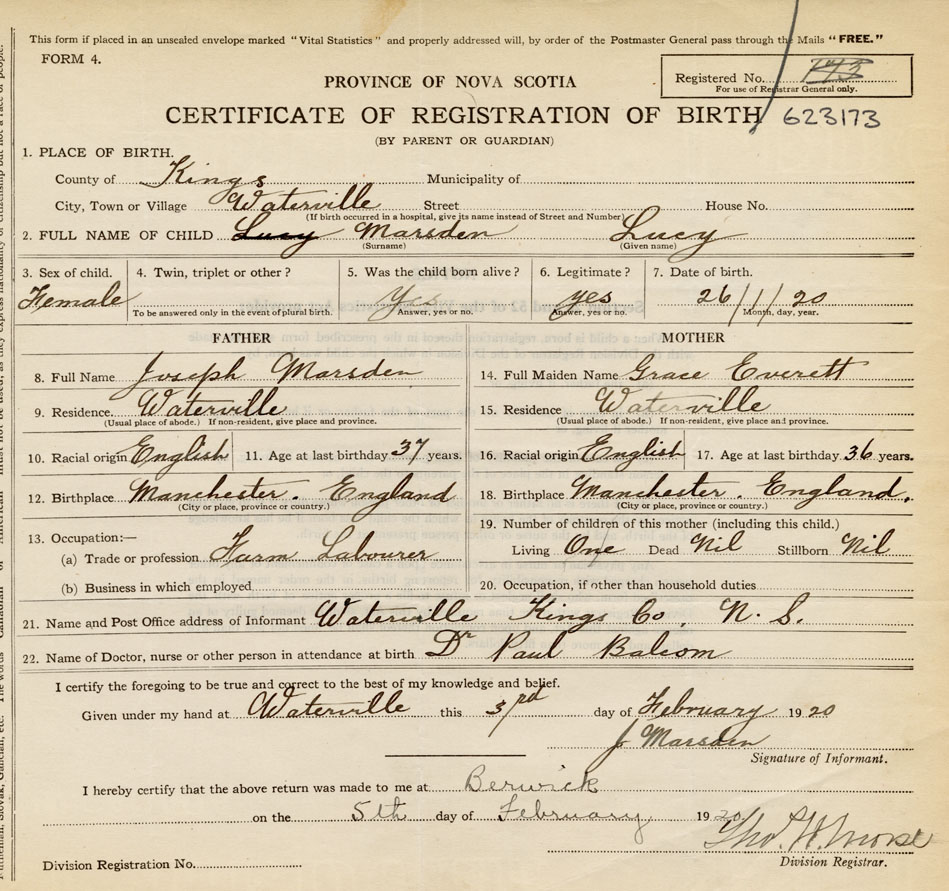 This form if placed in an unsealed envelope marked "Vital Statistics" and properly addressed will, by order of the Postmaster General pass through the Mails "FREE."
FORM 4.
PROVINCE OF NOVA SCOTIA
Registered No.
For use of Registrar General only.
CERTIFICATE OF REGISTRATION OF BIRTH 623173
(BY PARENT OR GUARDIAN)
1. PLACE OF BIRTH.
County of Kings Municipality of
City, Town or Village Waterville Street House No.
(If birth occurred in a hospital, give its name instead of Street and Number)
2. FULL NAME OF CHILD Lucy Marsden Lucy
(Surname) (Given name)
3. Sex of child. 4. Twin, triplet or other? 5. Was the child born alive? 6. Legitimate? 7. Date of birth.
Female Yes yes 26/1/20
To be answered only in the event of plural birth. Answer, yes or no. Answer, yes or no. Month, day, year.
FATHER MOTHER
8. Full Name Joseph Marsden 14. Full Maiden Name Grace Everett
9. Residence Waterville 15. Residence Waterville
(Usual place of abode.) If non-resident, give place and province. (Usual place of abode.) If non-resident, give place and province.
10. Racial origin English 11. Age at last birthday 37 years. 16. Racial origin English 17. Age at last birthday 36 years.
12. Birthplace Manchester. England 18. Birthplace Manchester. England.
(City or place, province or country.) (City or place, province or country.)
13. Occupation:— 19. Number of children of this mother (including this child.)
(a) Trade or profession Farm Labourer Living One Dead Nil Stillborn Nil
(b) Business in which employed 20. Occupation, if other than household duties
21. Name and Post Office address of Informant Waterville Kings Co. N. S.
22. Name of Doctor, nurse or other person in attendance at birth Dr Paul Balcom
I certify the foregoing to be true and correct to the best of my knowledge and belief.
Given under my hand at Waterville this 3rd day of February 1920
J Marsden
Signature of Informant.
I hereby certify that the above return was made to me at Berwick
on the 5th day of February 1920
Tho. H. Morse
Division Registrar.
Division Registration No.